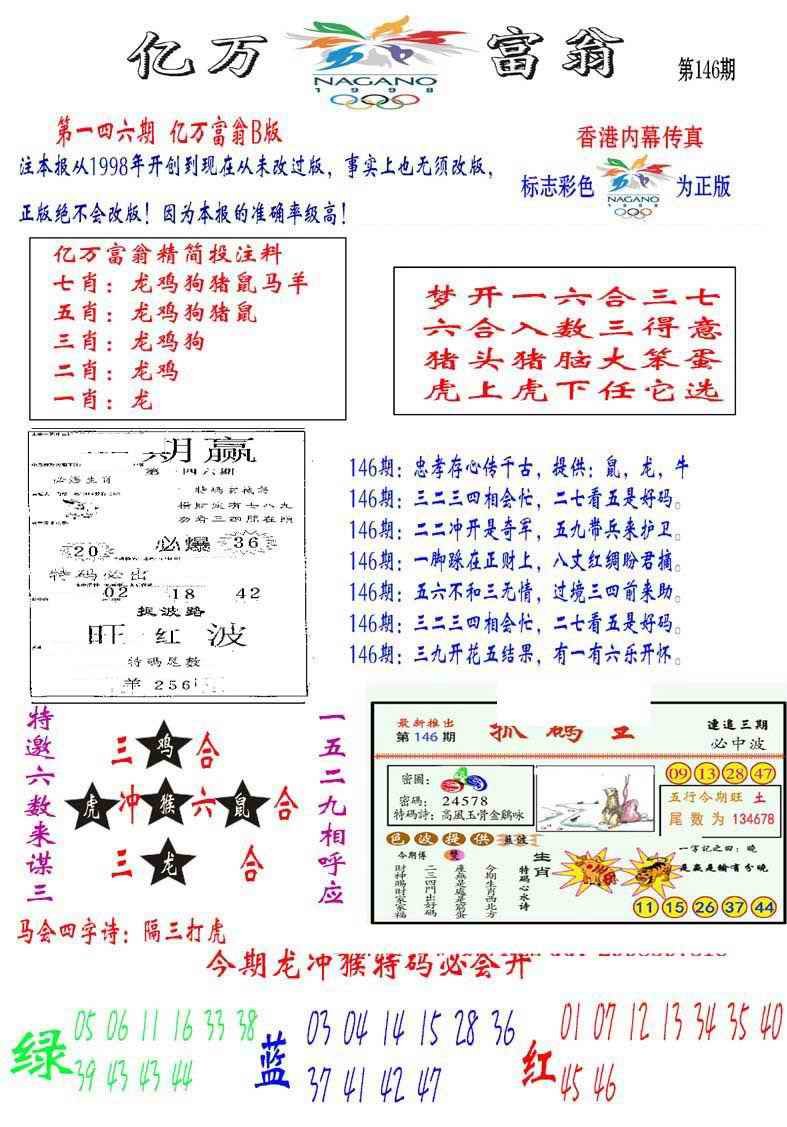 亿万富翁
第146期
NAGANO
1998
第一四六期 亿万富翁B版
注本报从1998年开创到现在从未改过版，事实上也无须改版，
正版绝不会改版！因为本报的准确率级高！
香港内幕传真
标志彩色
NAGANO
1998
为正版
亿万富翁精简投注料
七肖：龙鸡狗猪鼠马羊
五肖：龙鸡狗猪鼠
三肖：龙鸡狗
二肖：龙鸡
一肖：龙
梦开一六合三七
六合入数三得意
猪头猪脑大笨蛋
虎上虎下任它选
期赢
第一四六期
必爆
20
36
特码必出
02 18 42
捉波路
旺红波
特码尾数
羊256
146期：忠孝存心传千古，提供：鼠，龙，牛
146期：三二三四相会忙，二七看五是好码。
146期：二二冲开是奇军，五九带兵来护卫。
146期：一脚踩在正财上，八丈红绸盼君摘。
146期：五六不和三无情，过境三四前来助。
146期：三二三四相会忙，二七看五是好码。
146期：三九开花五结果，有一有六乐开怀。
特邀六数来谋三
三 鸡 合
虎 冲 猴 六 鼠 合
三 龙 合
一五二九相呼应
马会四字诗：隔三打虎
最新推出
第146期
抓码王
连追三期
必中波
密圖：
密碼：24578
特碼詩：高風玉骨金鷄咏
09 13 28 47
五行今期旺 土
尾数为134678
色波提供
蓝波
今期博
雙
財神賜財家家福
二三四門出好碼
今期生肖西北方
特码心水诗
生肖
一字記之曰：曉
11 15 26 37 44
今期龙冲猴特码必会开
绿
05 06 11 16 33 38
39 43 43 44
蓝
03 04 14 15 28 36
37 41 42 47
红
01 07 12 13 34 35 40
45 46